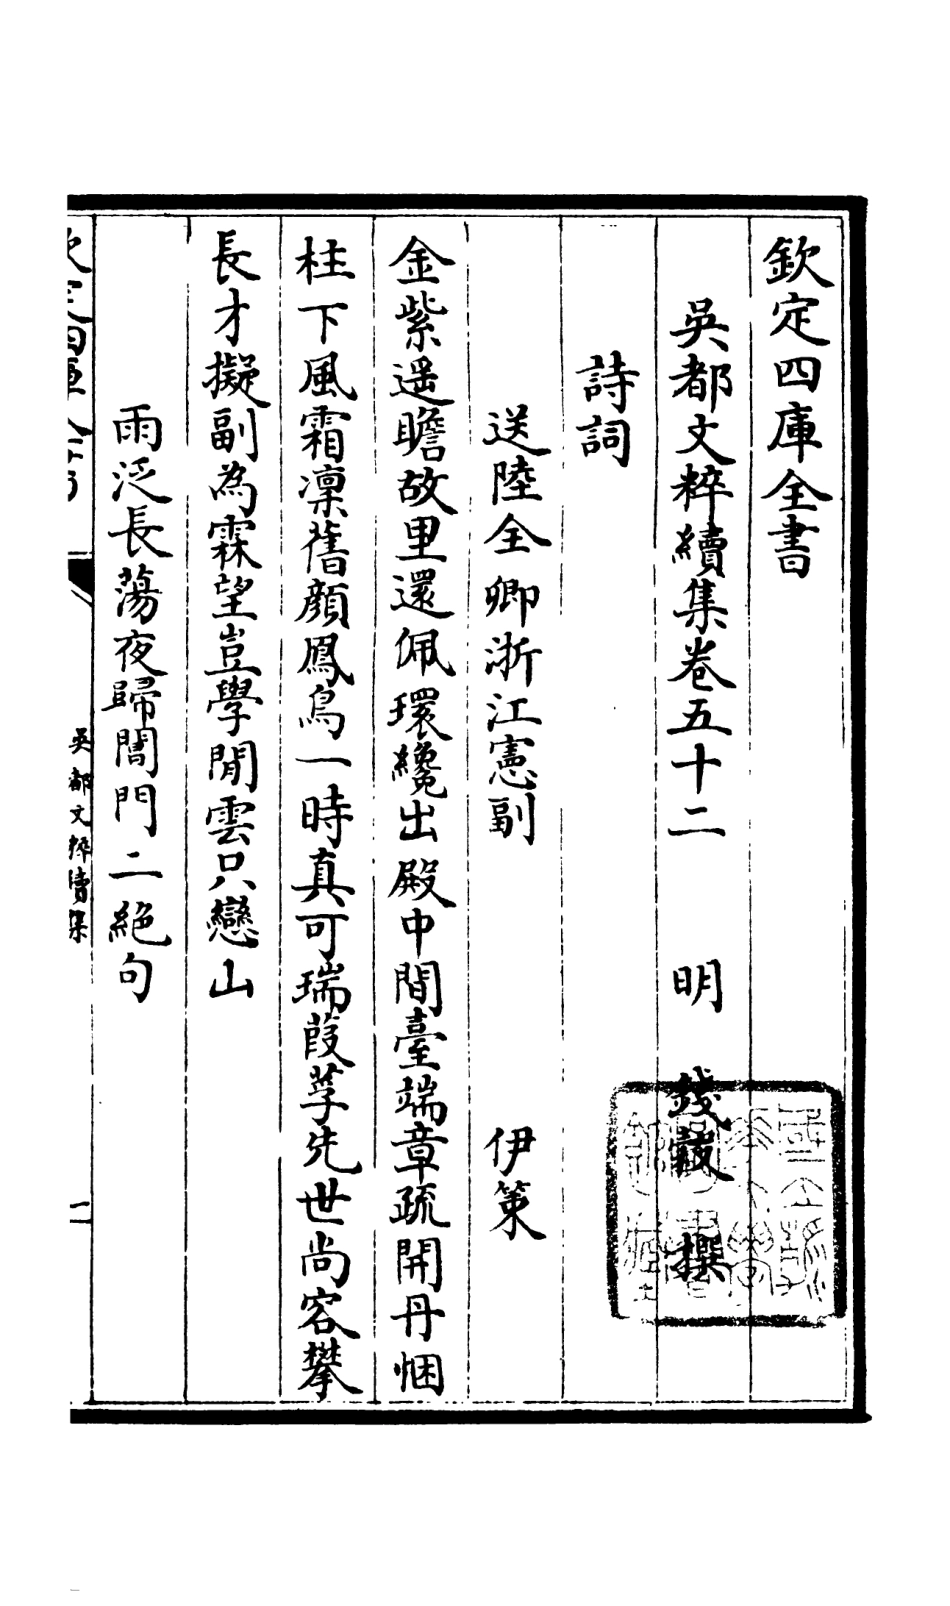 欽定四庫全書
吳都文粹續集卷五十二　明　錢穀　撰
詩詞
送陸全卿浙江憲副　伊策
金紫遥瞻故里還佩環纔出殿中間臺端章疏開丹悃
柱下風霜凛舊顔鳳鳥一時真可瑞葭莩先世尚容攀
長才擬副為霖望豈學閒雲只戀山
雨泛長蕩夜歸閶門二絶句
欽定四庫全書
吳都文粹續集